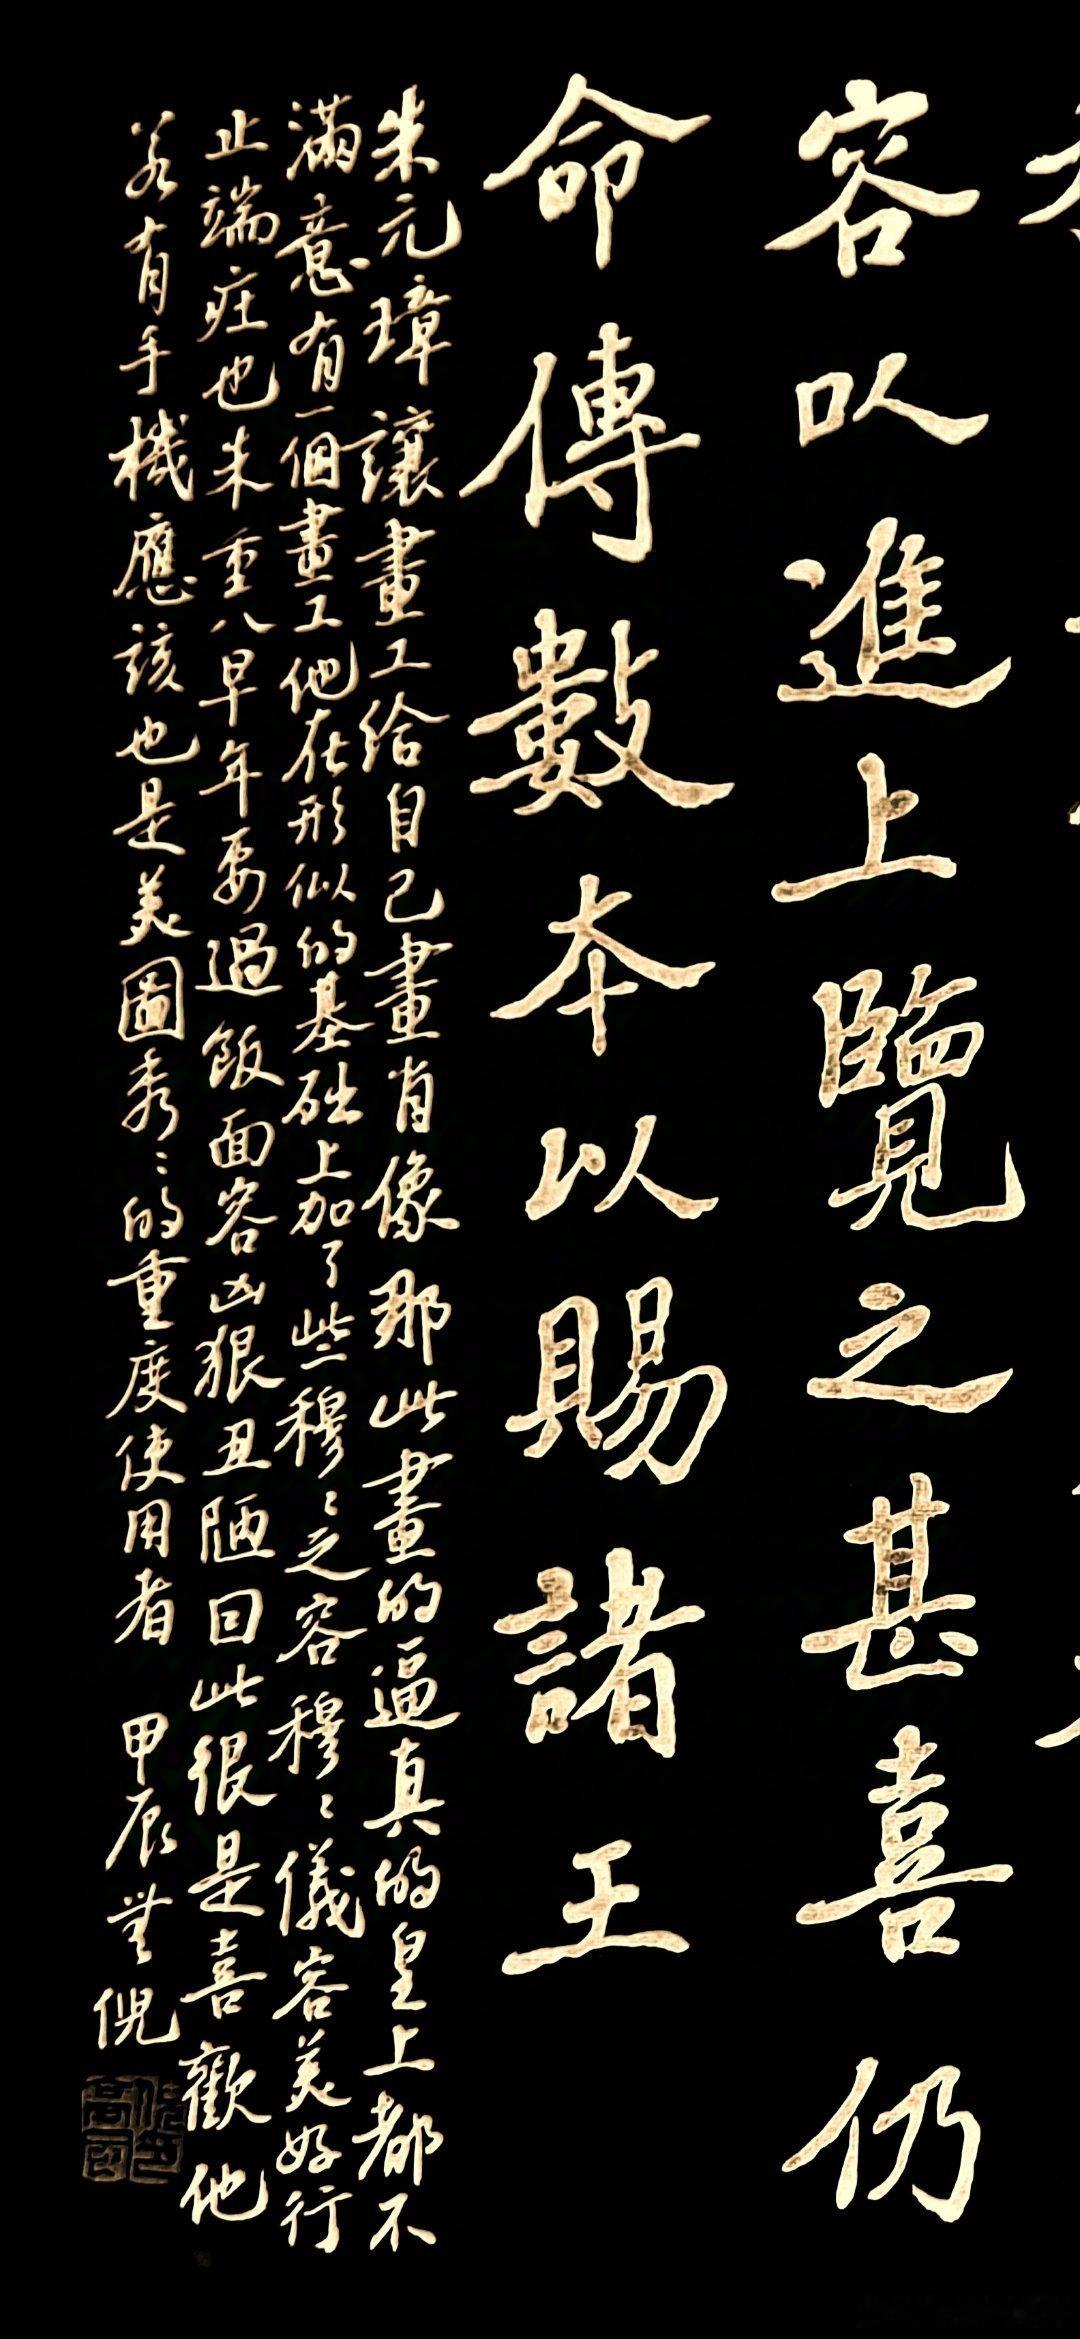 容以進上覽之甚喜仍
命傳數本以賜諸王
朱元璋讓畫工給自己畫肖像那些畫的逼真的皇上都不
滿意有一個畫工他在形似的基础上加了些穆〻之容穆〻儀容美好行
止端庄也朱重八早年要過飯面容凶狠丑陋因此很是喜歡他
若有手機應該也是美圖秀〻的重度使用者 甲辰 倪